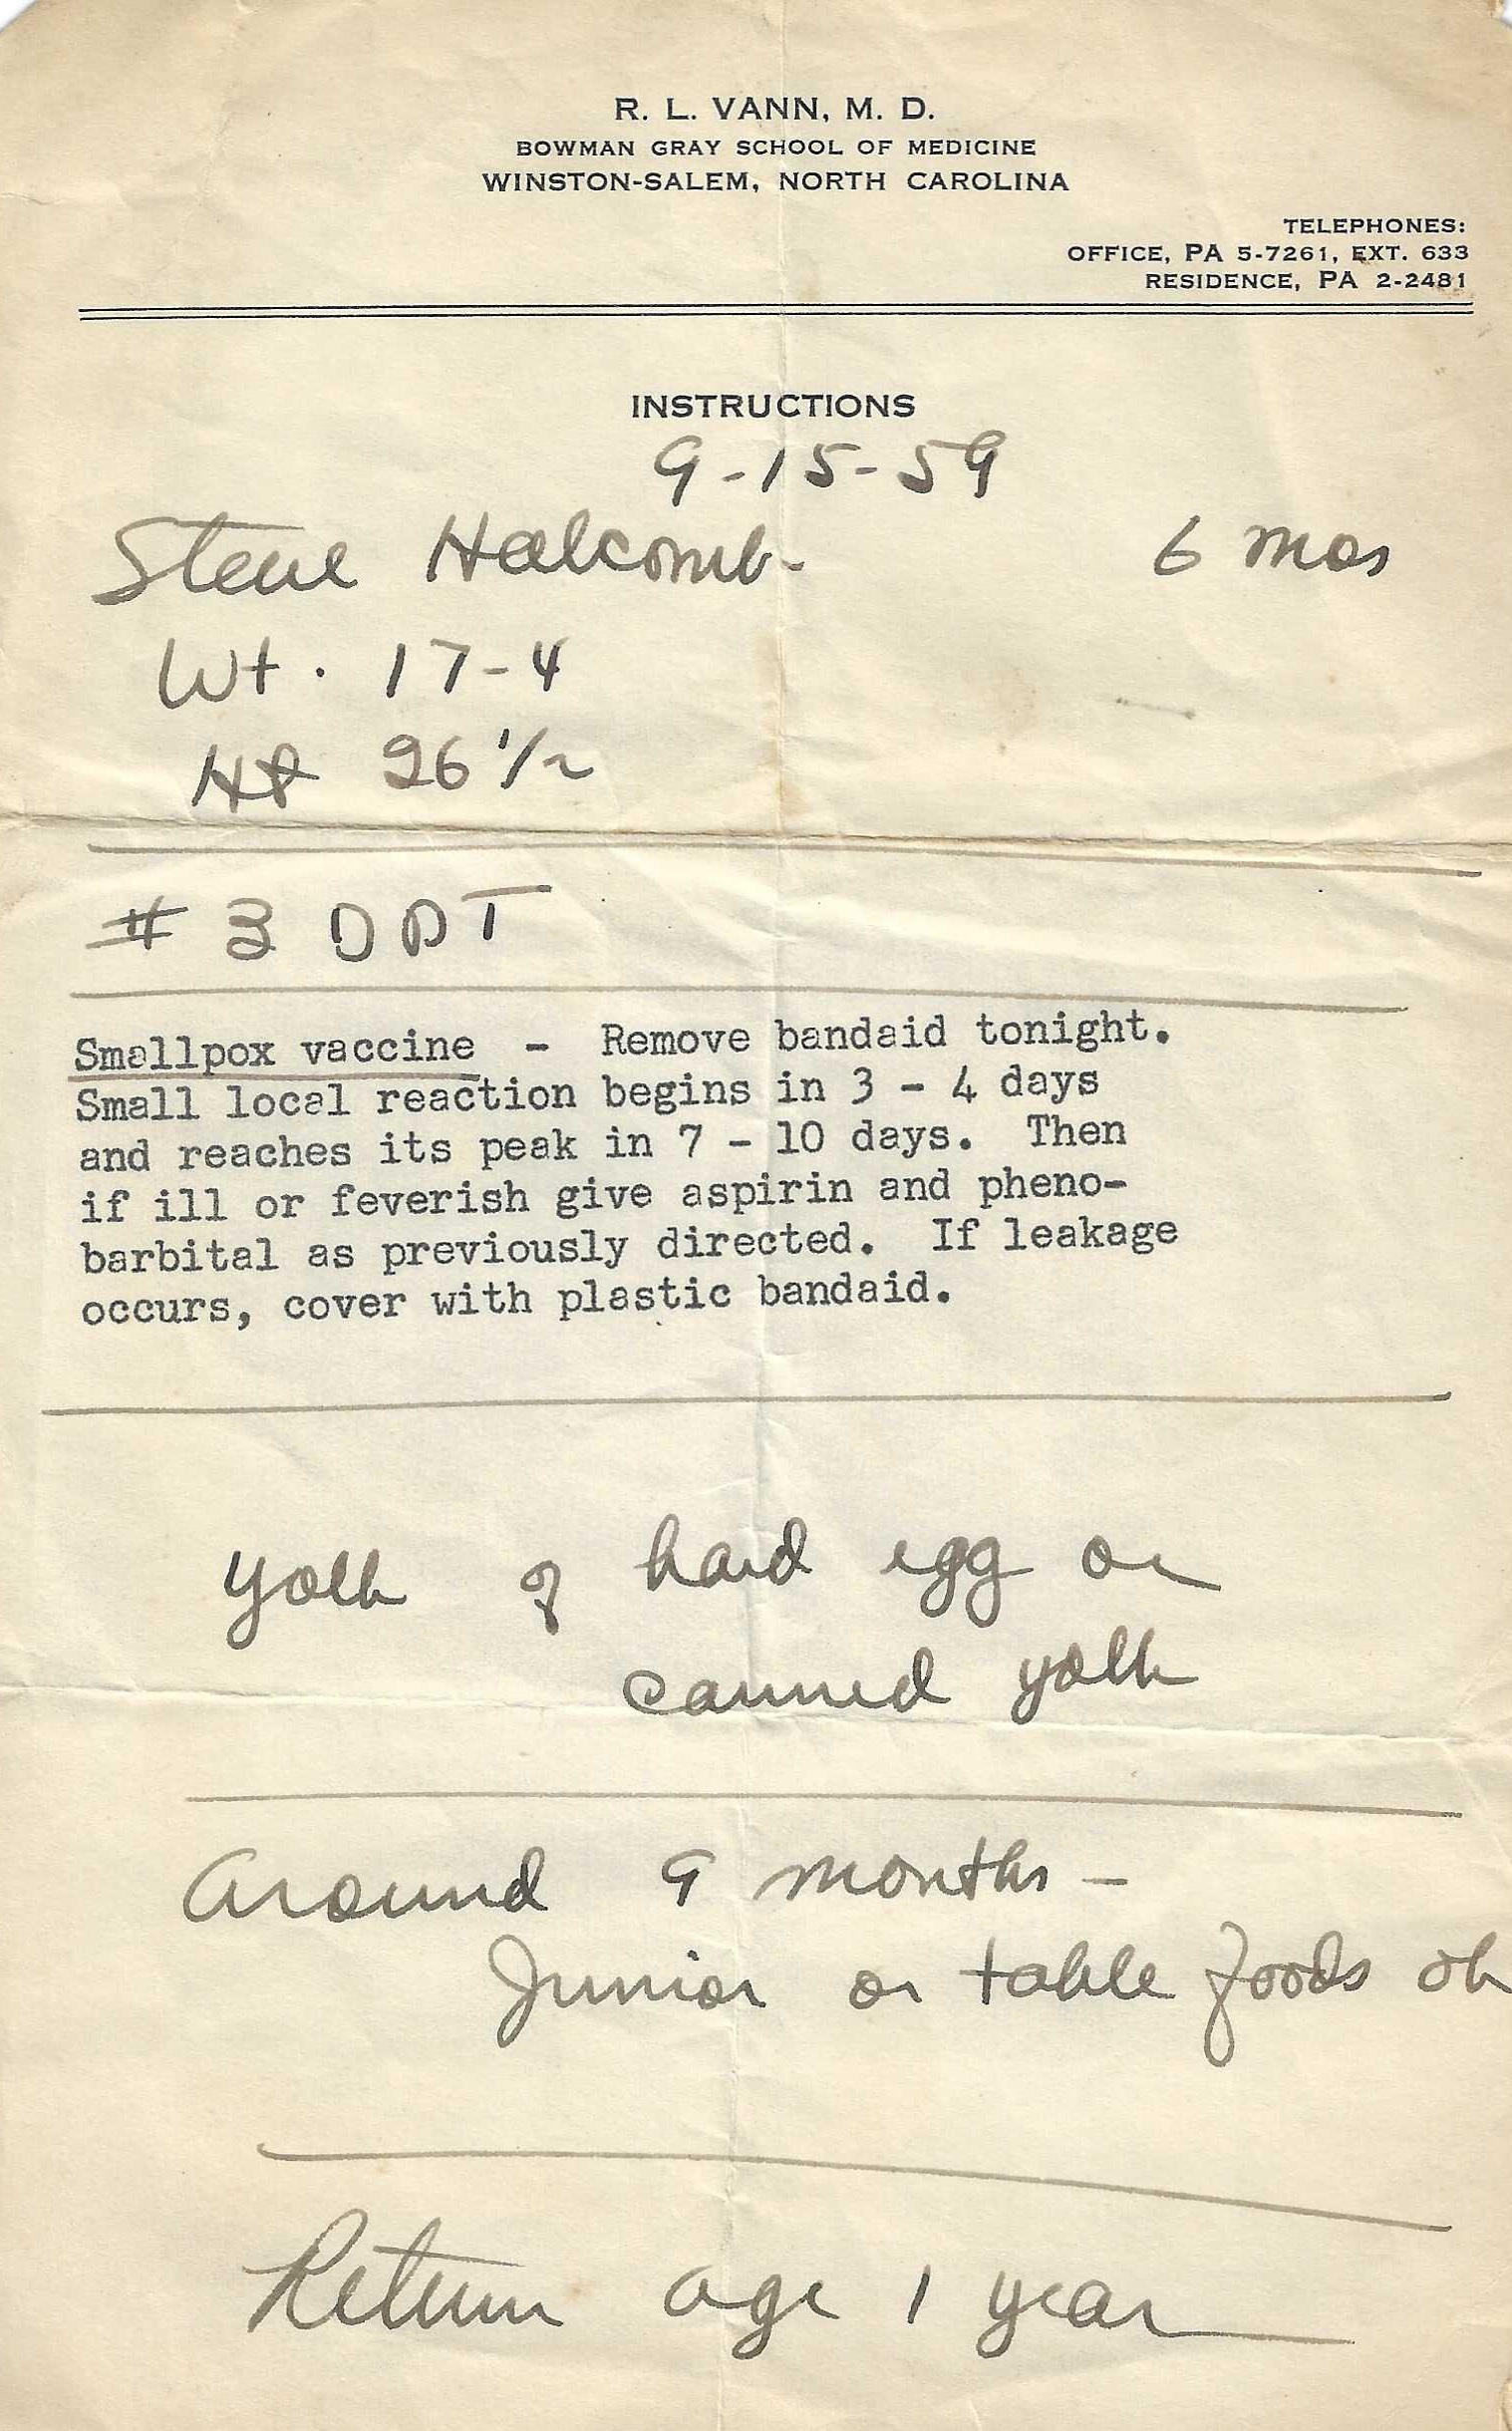 R. L. VANN, M. D.
BOWMAN GRAY SCHOOL OF MEDICINE
WINSTON-SALEM, NORTH CAROLINA
TELEPHONES:
OFFICE, PA 5-7261, EXT. 633
RESIDENCE, PA 2-2481
INSTRUCTIONS
9-15-59
Steve Halcomb 6 mos
Wt. 17-4
Ht 26 1/2
# 3 DPT
Smallpox vaccine - Remove bandaid tonight.
Small local reaction begins in 3 - 4 days
and reaches its peak in 7 - 10 days. Then
if ill or feverish give aspirin and pheno-
barbital as previously directed. If leakage
occurs, cover with plastic bandaid.
yolk of hard egg or
canned yolk
Around 9 months -
Junior or table foods ok
Return age 1 year